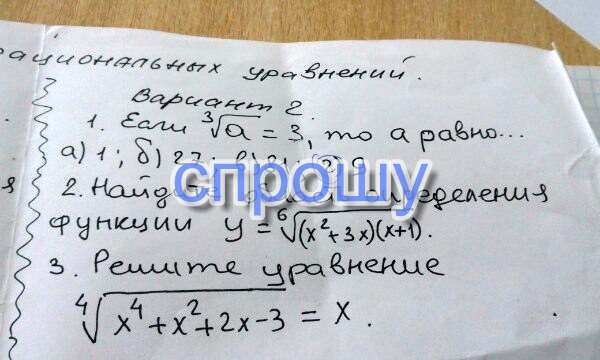 рациональных уравнений.
Вариант 2.
1. Если ∛a = 3, то a равно...
а) 1; б) 27; 9
спрошу
2. Найдите определения
я функции y = ⁶√(x²+3x)(x+1).
3. Решите уравнение
⁴√x⁴+x²+2x-3 = x.